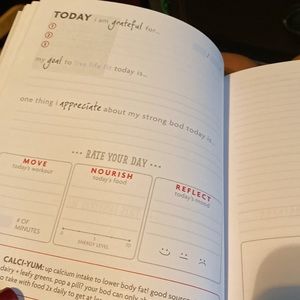 TODAY i am grateful for...
1
2
3
my goal to live life fit today is...
one thing i appreciate about my strong bod today is
RATE YOUR DAY
MOVE
today's workout
NOURISH
today's food
REFLECT
today's mood
# OF
MINUTES
ENERGY LEVEL
CALCI-YUM: up calcium intake to lower body fat! good sources
dairy + leafy greens. pop a pill? your bod can only
to take with food 2x daily to get at